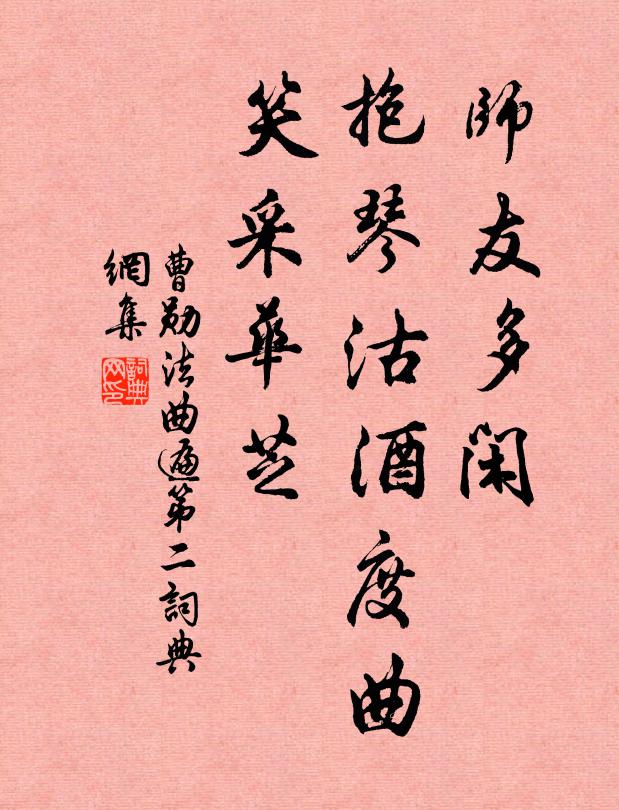 師友多閑
抱琴沽酒度曲
笑采華芝
曹勛法曲遍第二詞典
網集
詞典
网印